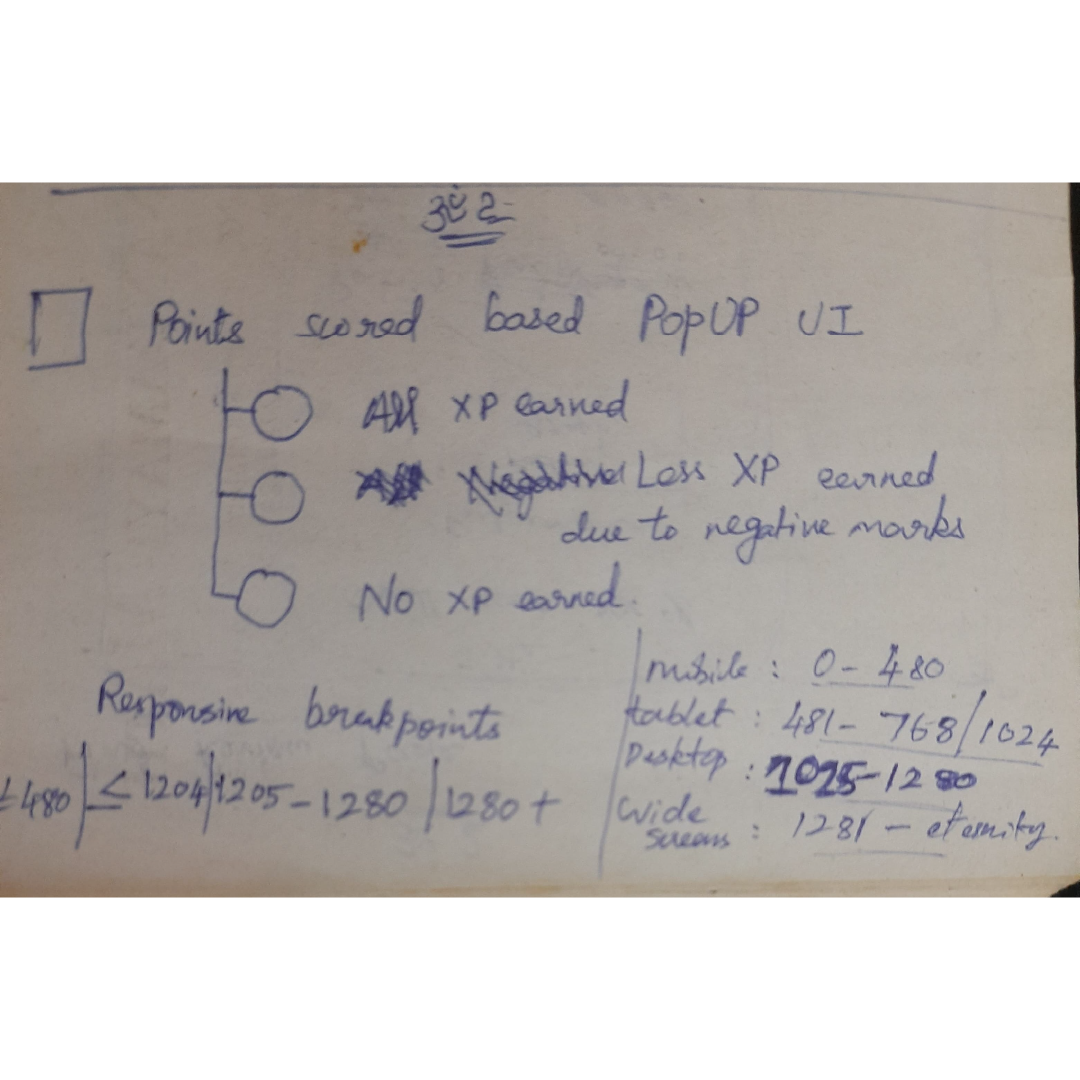 Points scored based PopUP UI
All XP earned
Less XP earned
due to negative marks
No XP earned.
Responsive breakpoints
≤480 | ≤ 1204 | 1205 - 1280 | 1280 +
mobile : 0 - 480
tablet : 481 - 768/1024
Desktop : 1025 - 1280
Wide
screens : 1281 - eternity.